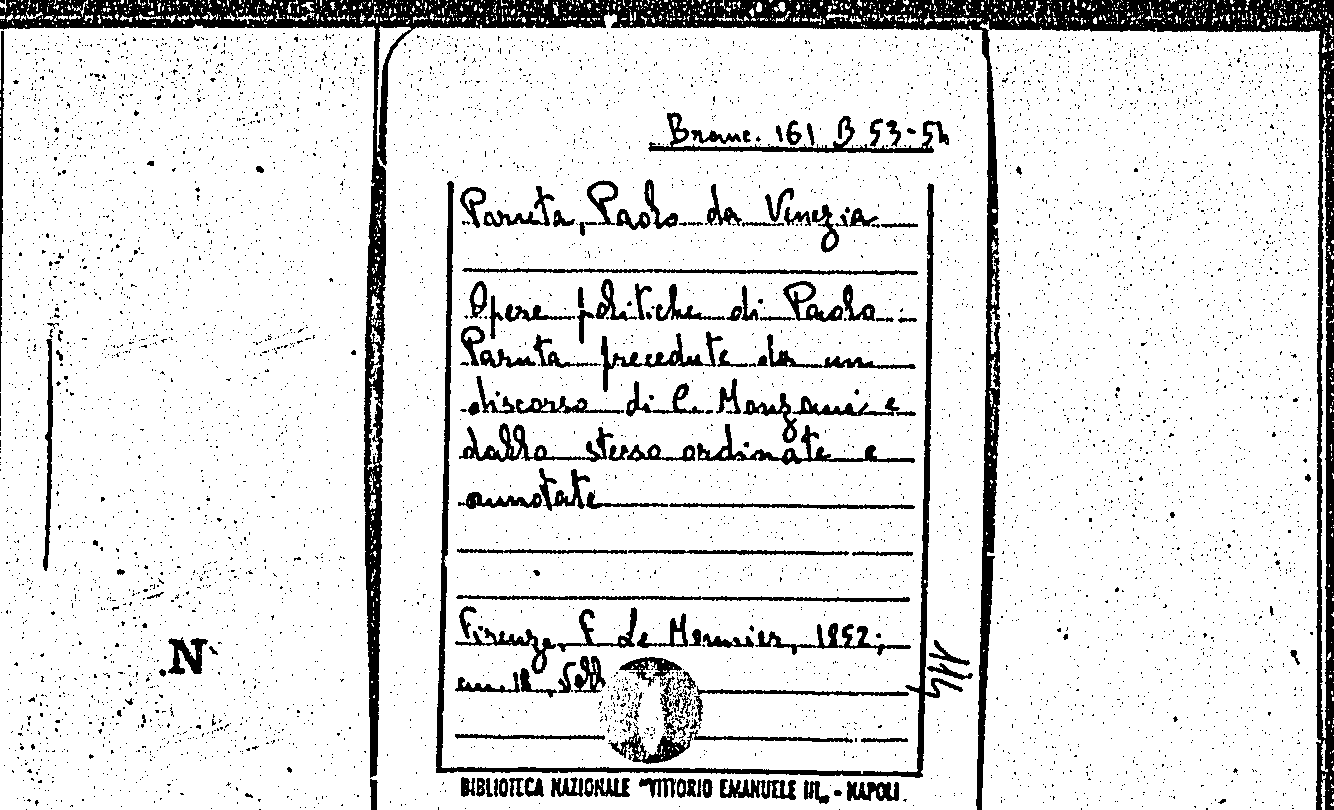 Branc. 161 B 53-54
Paruta, Paolo da Venezia
Opere politiche di Paolo
Paruta precedute da un
discorso di C. Monzani e
dallo stesso ordinate e
annotate
Firenze, F Le Monnier, 1852;
cm. 18, Voll
114
.N
BIBLIOTECA NAZIONALE "VITTORIO EMANUELE III„ - NAPOLI